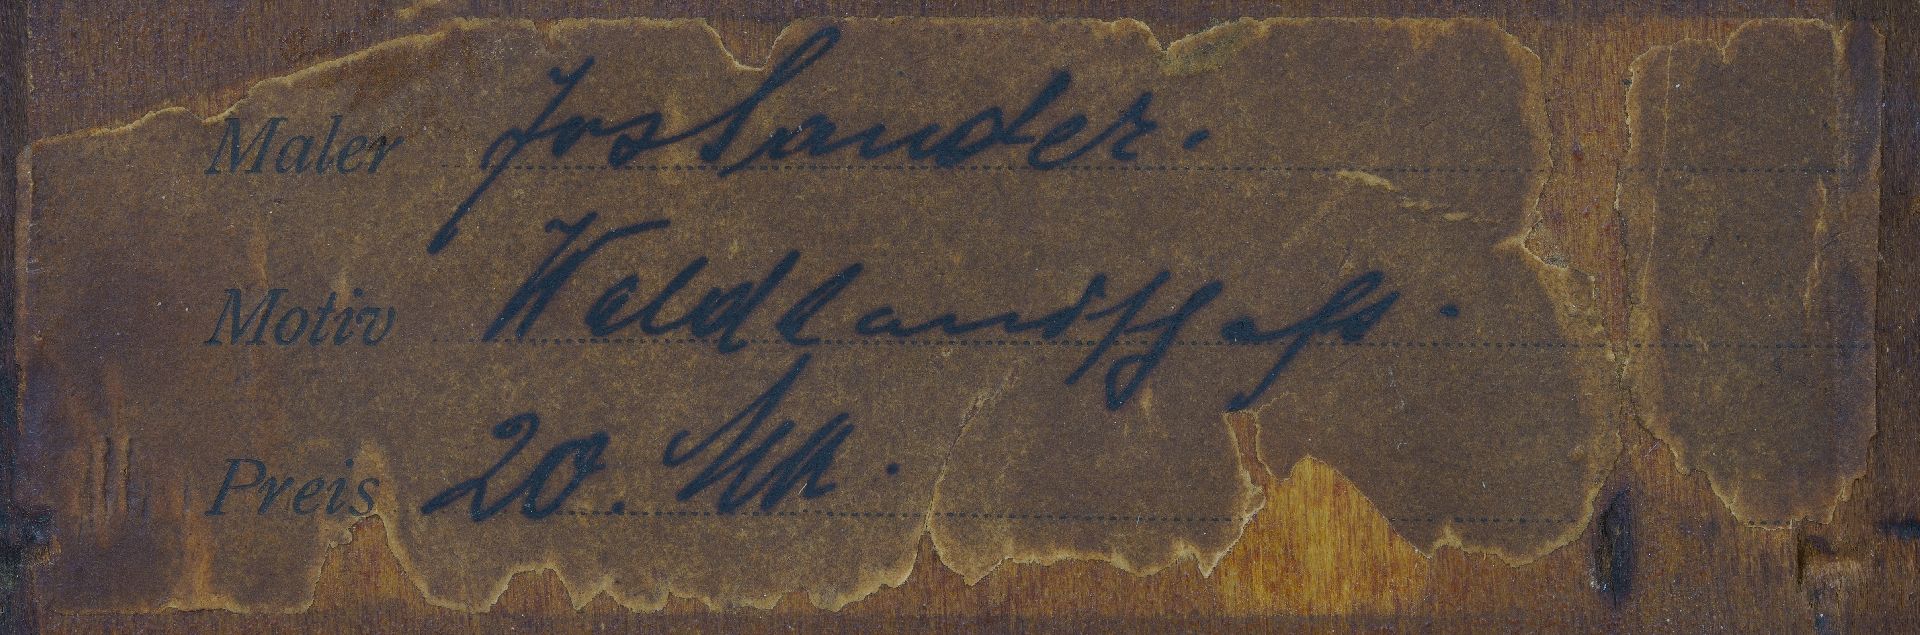 Maler Jos Sander.
Motiv Waldlandschaft.
Preis 20. Mk.